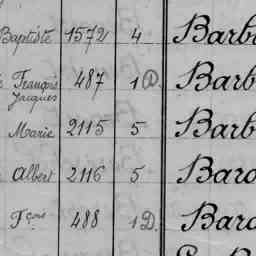 Baptiste 1572 4 Barb
François Jacques 487 1D. Barb
Marie 2115 5 Barb
Albert 2116 5 Baro
Fçois 488 1D. Baro